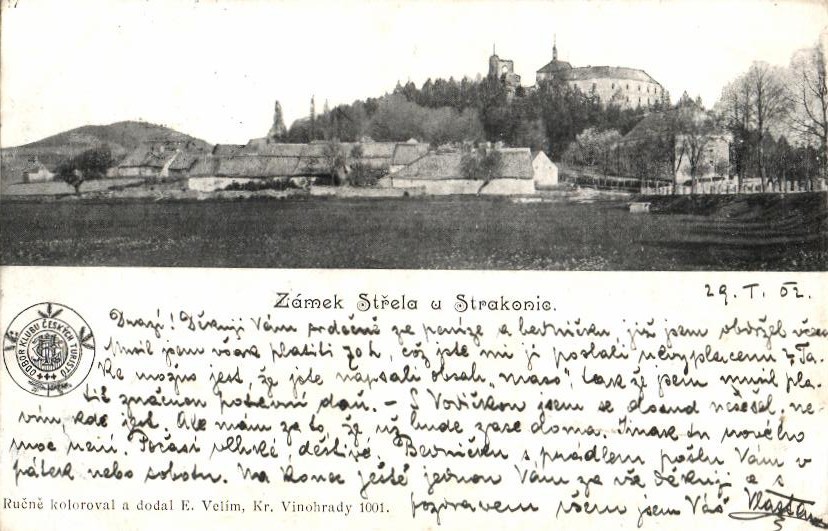 Zámek Střela u Strakonic.
29. I. 02.
ODBOR KLUBU ČESKÝCH TURISTŮ
Drazí! Děkuji Vám srdečně za peníze a bedničku, již jsem obdržel včera
Musil jsem však platiti 70 h, což jste mi ji poslali nevyplacenu. Ta-
ké možno jest, že jste napsali obsah „maso", takže jsem musil pla-
tit značnou potravní daň. – S Vodičkou jsem se dosud nesešel, ne-
vím, kde jest. Ale mám za to, že už bude zase doma. Jinak tu nového
moc není. Počasí vlhké, deštivé. Bedničku s prádlem pošlu Vám v
pátek nebo sobotu. Na konec ještě jednou Vám za vše děkuji a s
pozdravem všem jsem Váš
Ručně koloroval a dodal E. Velím, Kr. Vinohrady 1001.